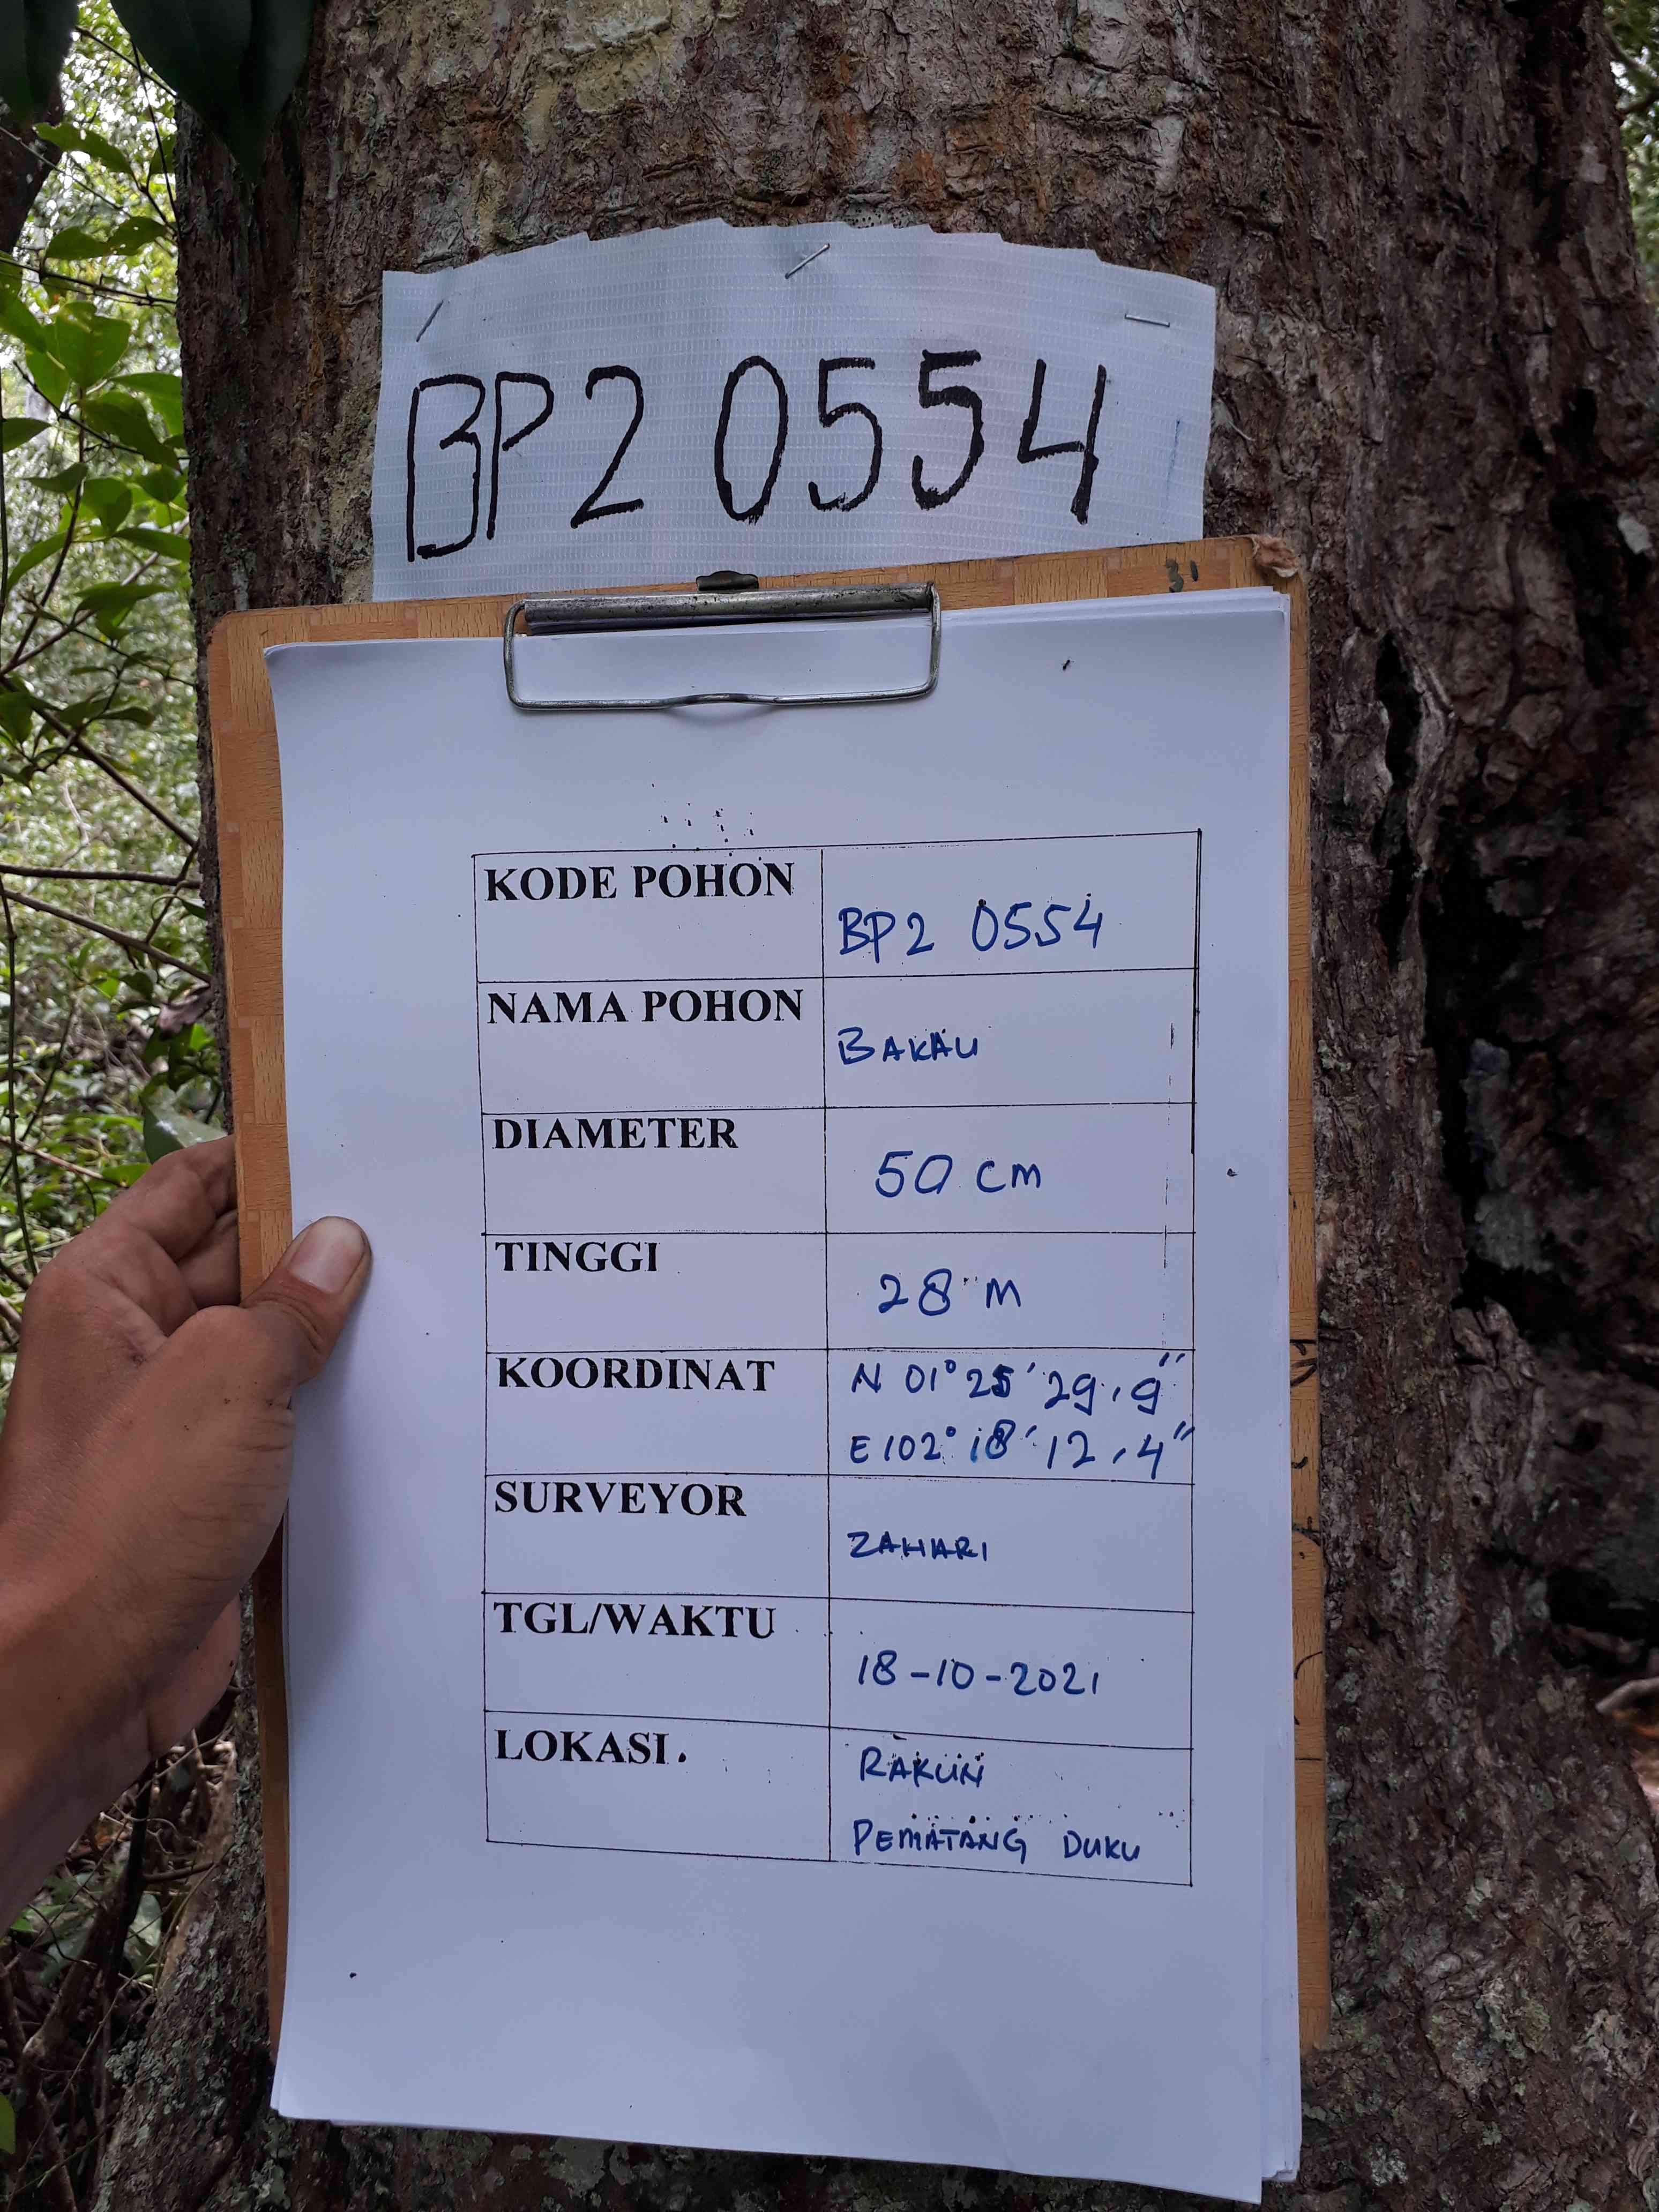 BP2 0554
31
KODE POHON
BP2 0554
NAMA POHON
BAKAU
DIAMETER
50 cm
TINGGI
28 M
KOORDINAT
N 01° 25' 29,9"
E 102° 18' 12,4"
SURVEYOR
ZAHARI
TGL/WAKTU
18-10-2021
LOKASI.
RAKUN
PEMATANG DUKU